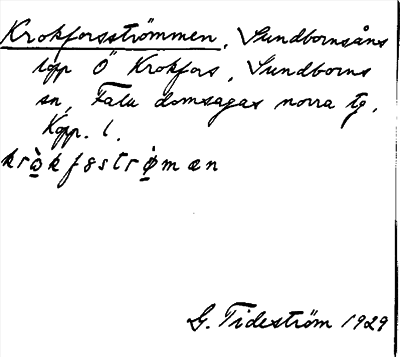 Krokforsströmmen, Sundbornsåns
lopp Ö Krokfors, Sundborns
sn, Falu domsagas norra tg,
Kopp. l.
krò̱kfsströ̱mæn
G. Tideström 1929